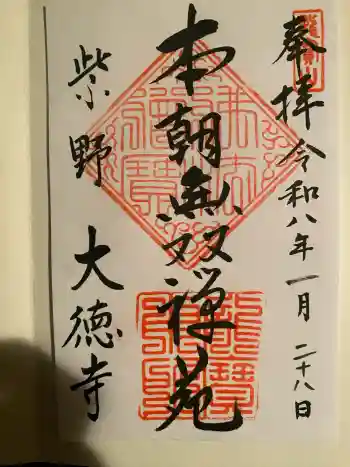 奉拝令和八年一月二十八日
本朝無双禅苑
紫野 大徳寺